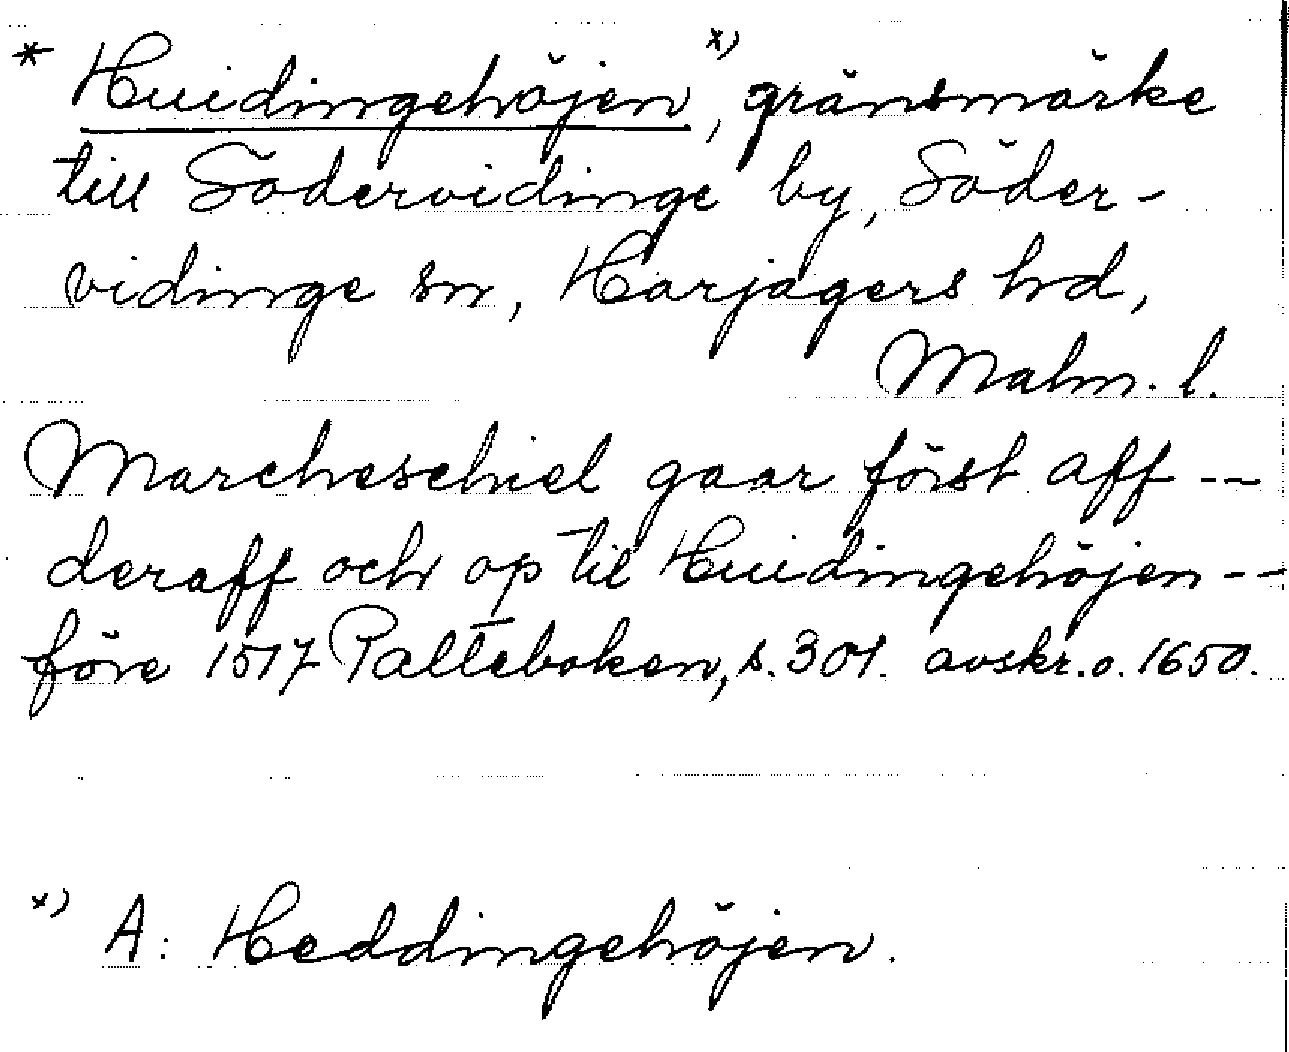 * Huidingehöjen x), gränsmärke
till Södervidinge by, Söder-
vidinge sn, Harjagers hd,
Malm. l.
Marcheschiel gaar först aff --
deraff och op til Huidingehöjen --
före 1517 Palteboken, s. 301. avskr. o. 1650.
x) A: Heddingehöjen.